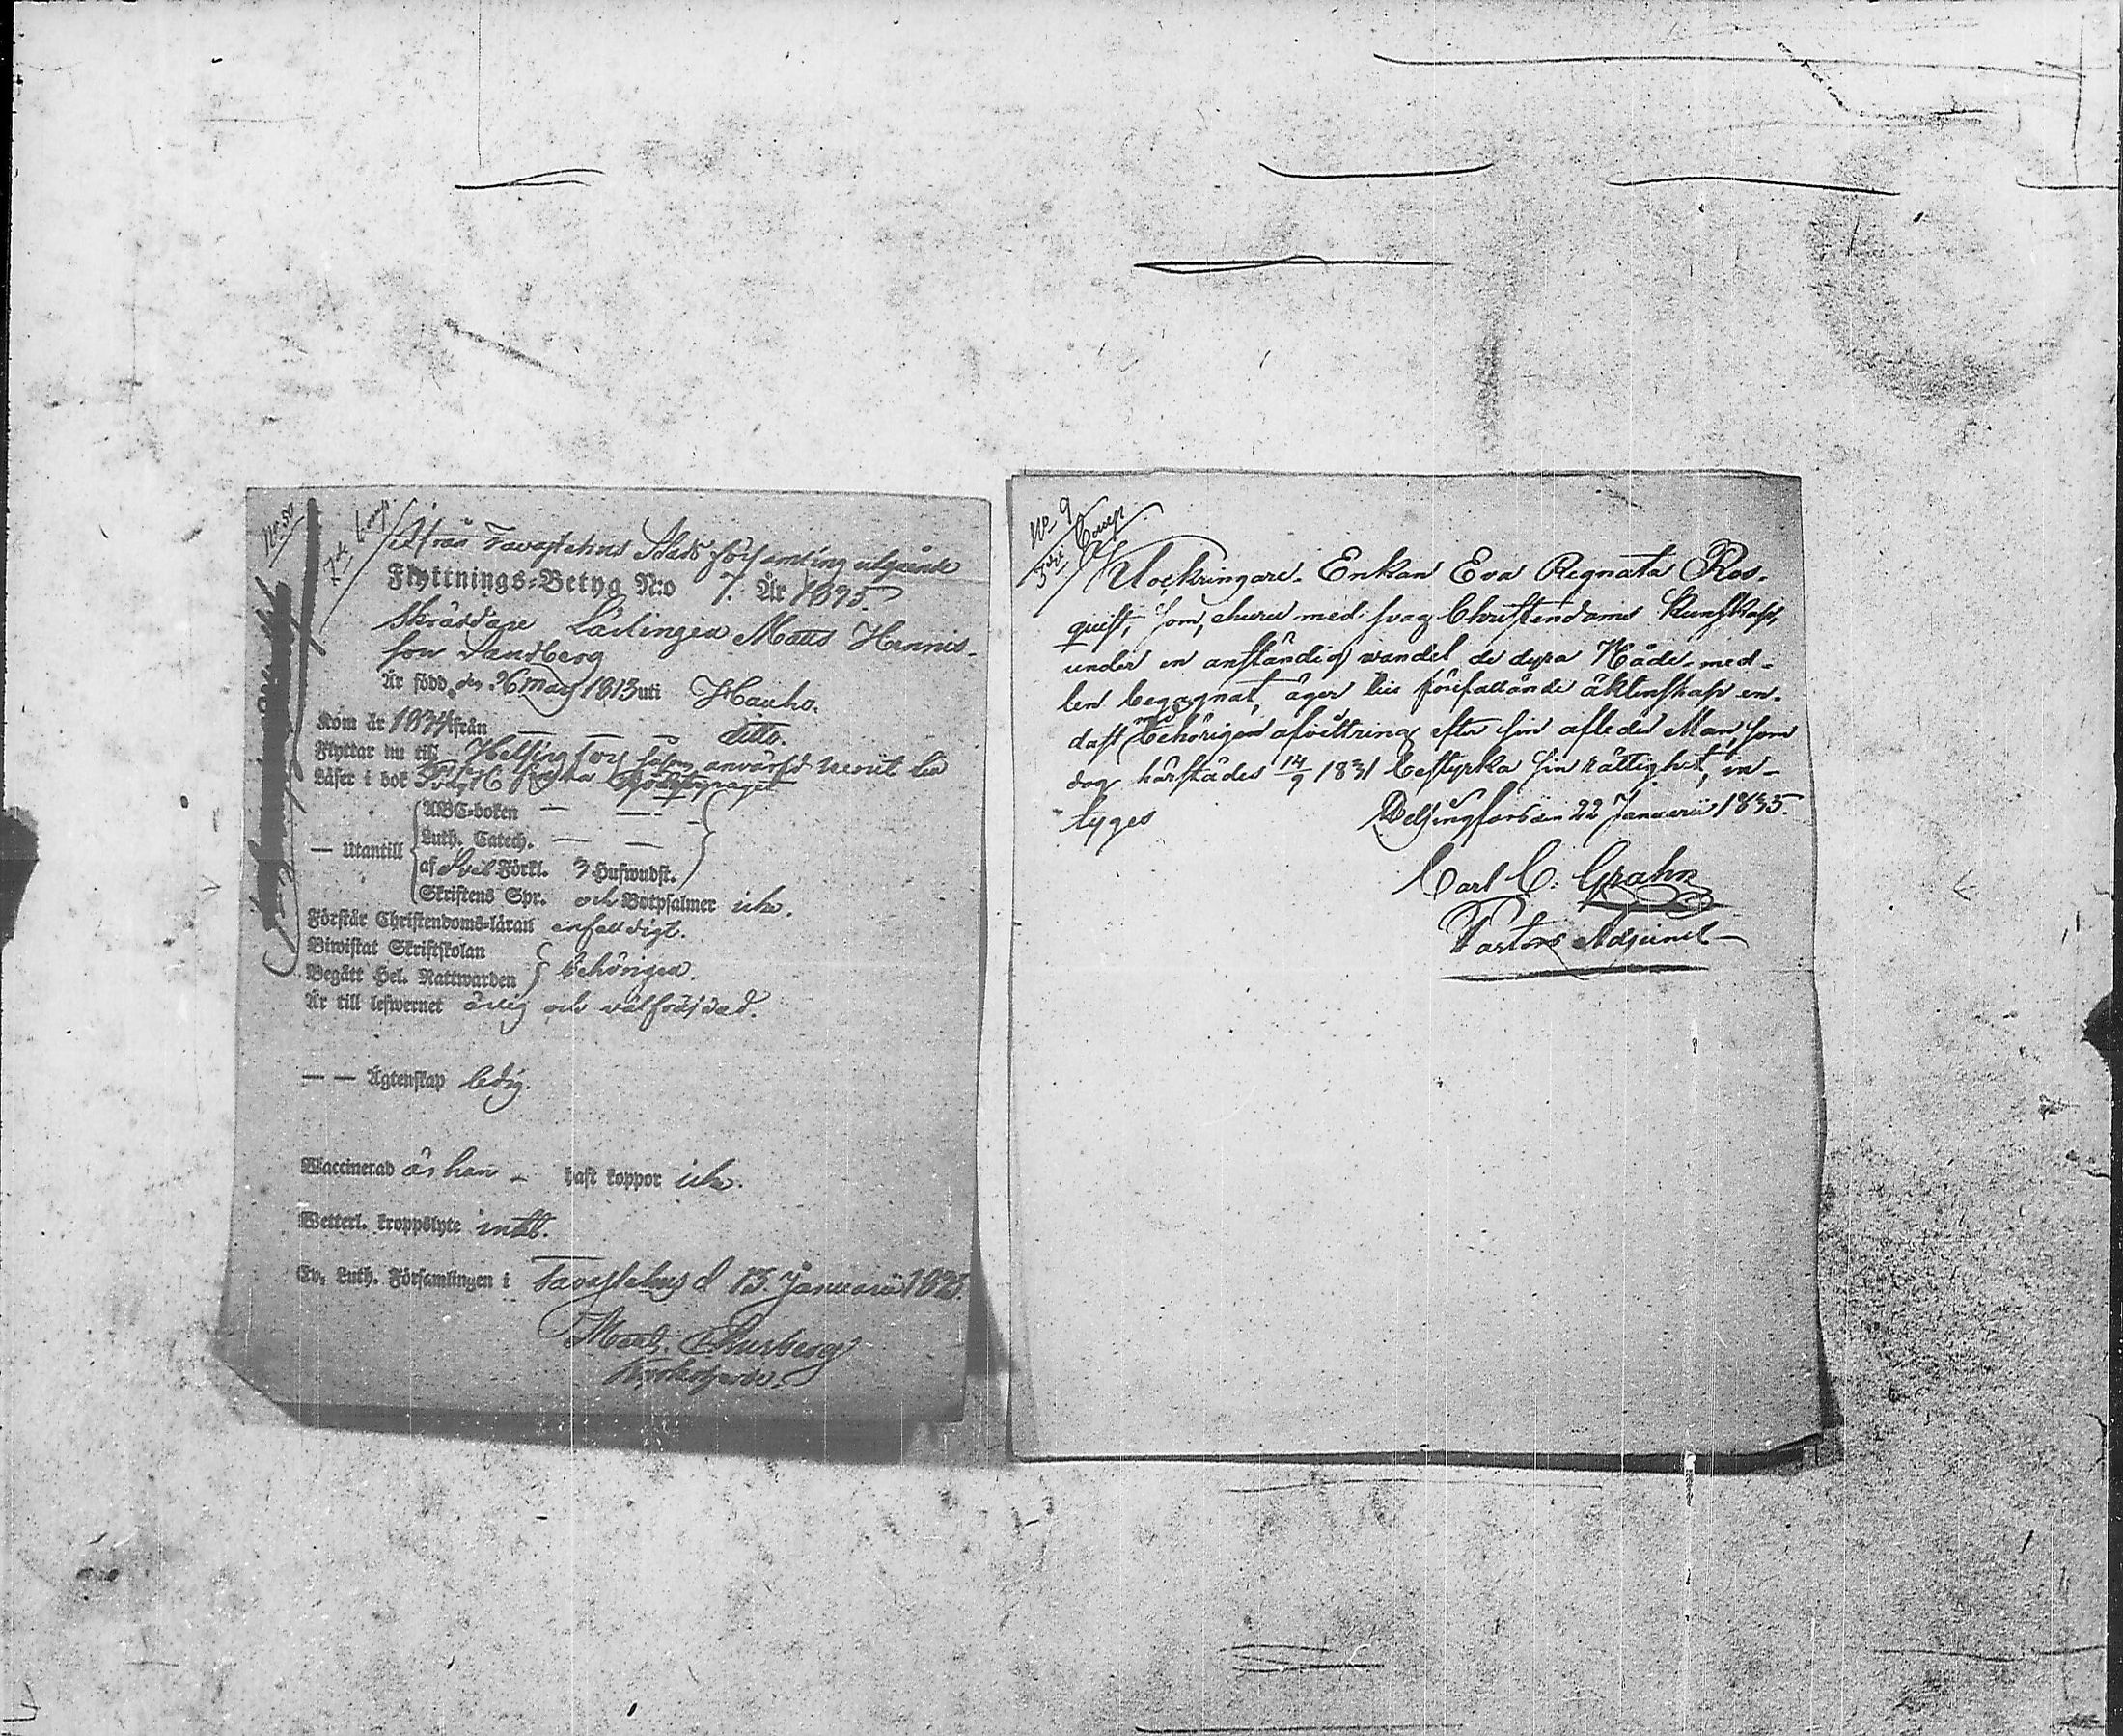 No 50
7de Comp
Ifrån Tavastehus Stads församling utgående
Flyttnings-Betyg N:o 7. År 1835.
Skräddare Lärlingen Matts Hennis-
son Sandberg
Är född den 26 Maij 1813 uti Hauho.
Kom år 1834 ifrån — — — ditto.
Flyttar nu till Helsingfors
Läser i bok
ABC-boken — —
— Utantill Luth. Catech. — —
af Förkl. 3 Hufwudst.
Skriftens Spr. och Botpsalmer icke.
Förstår Christendoms-läran enfaldigt.
Biwistat Skriftskolan
Begått Hel. Nattwarden behörigen.
Är till lefwernet ärlig och välfräjdad.
— — Ägtenskap ledig.
Waccinerad är han — haft koppor icke.
Wetterl. kroppslyte intet.
Ev. Luth. Församlingen i Tavastehus d 13. Januarii 1835.
Kyrkoherde.
No 9
5dre Comp
Klockringare-Enkan Eva Regnata Ros-
quist, som, ehuru med svag Christendoms Kunskap,
under en anständig wandel de dyra Nåde-med-
len begagnat, äger till förefallande äktenskap en-
dast med behörigen afvittring efter sin aflednе Man, som
dog härstädes 14/9 1831 bestyrka sin rättighet, in-
tyges Helsingfors den 22 Januarii 1835.
Carl C. Grahn
Pastors Adjunct